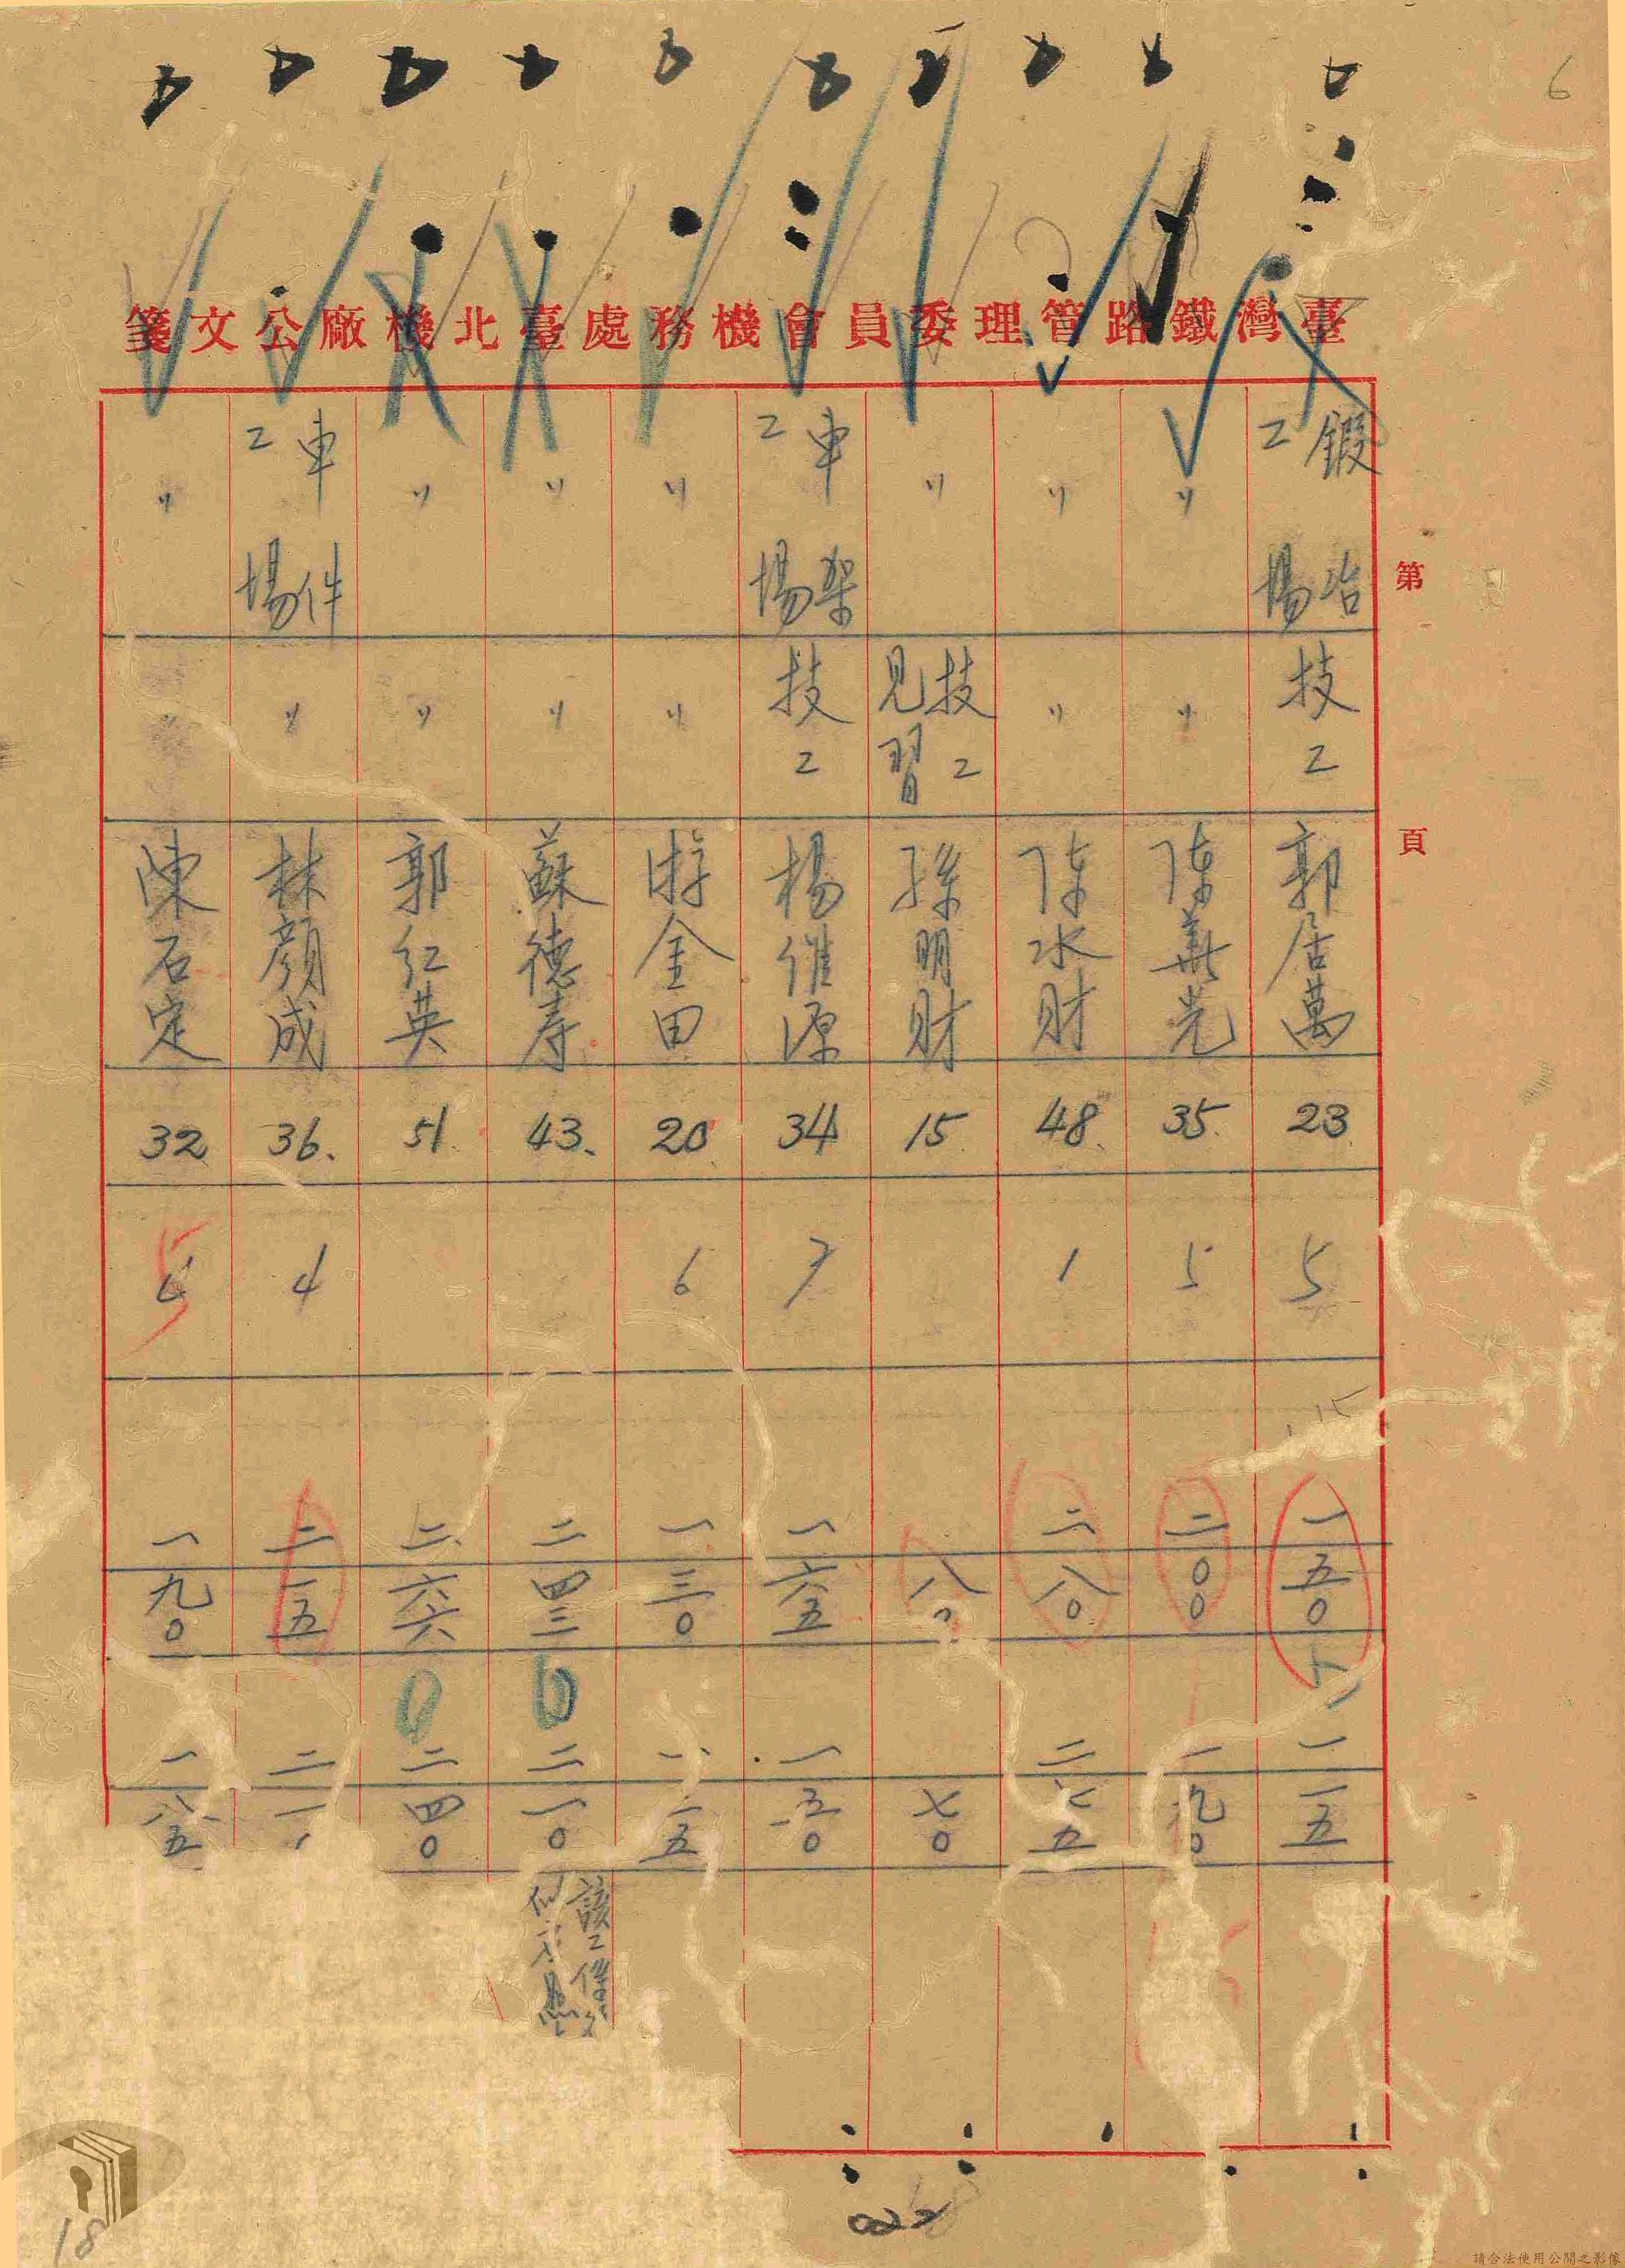 6
臺灣鐵路管理委員會機務處臺北機廠公文箋
第 頁
鍛冶工場 技工 郭居萬 23 5 一五〇 一一五
〃 〃 陳華光 35 5 二〇〇 一九〇
〃 〃 陳水財 48 1 二八〇 二七五
〃 技工見習 孫明財 15 八〇 七〇
車架工場 技工 楊維源 34 7 一六五 一五〇
〃 〃 游金田 20 6 一三〇 一一五
〃 〃 蘇德寿 43 二四三 二一〇 該工係
〃 〃 郭紅英 51 二六六 二四〇
車件工場 〃 林顏成 36 4 二一五 二一
〃 〃 陳石定 32 一九〇 一八五
022
18
請合法使用公開之影像